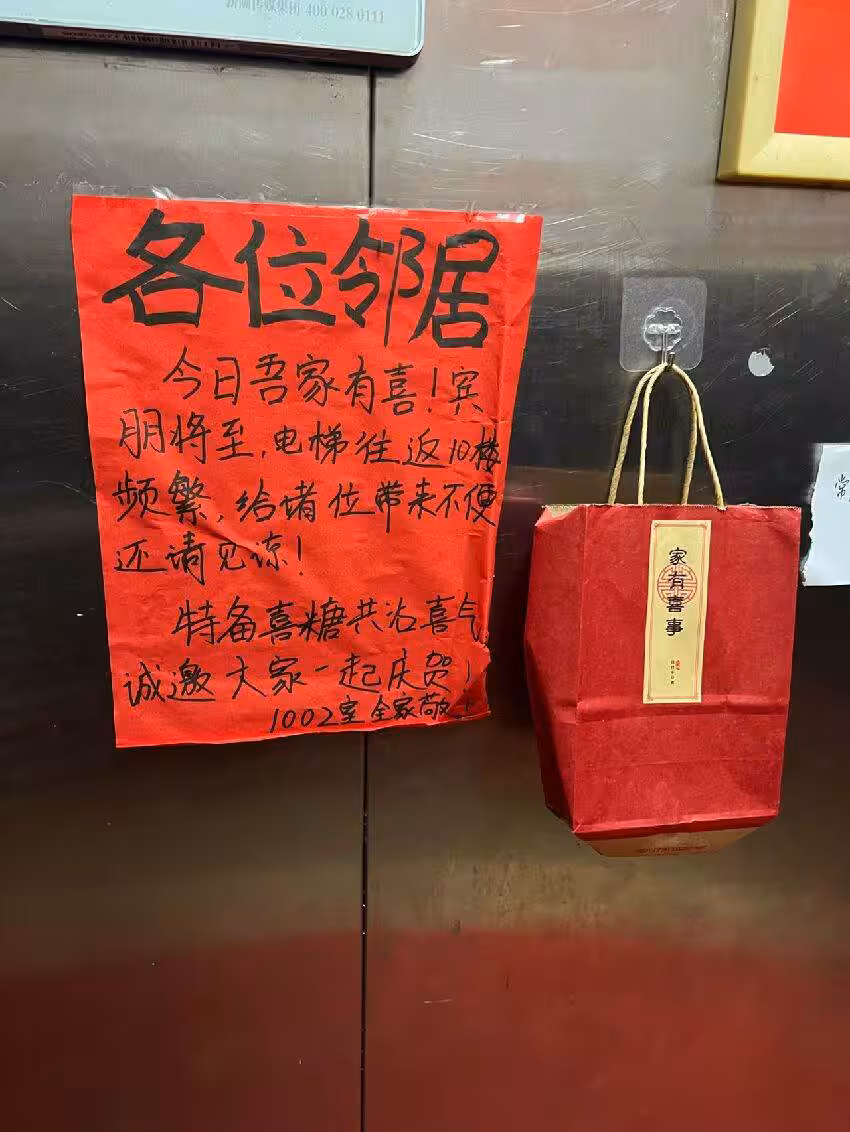 新潮传媒集团 400 028 0111
各位邻居
今日吾家有喜！宾
朋将至，电梯往返10楼
频繁，给诸位带来不便
还请见谅！
特备喜糖共沾喜气
诚邀大家一起庆贺！
1002室全家敬上
家有喜事
常